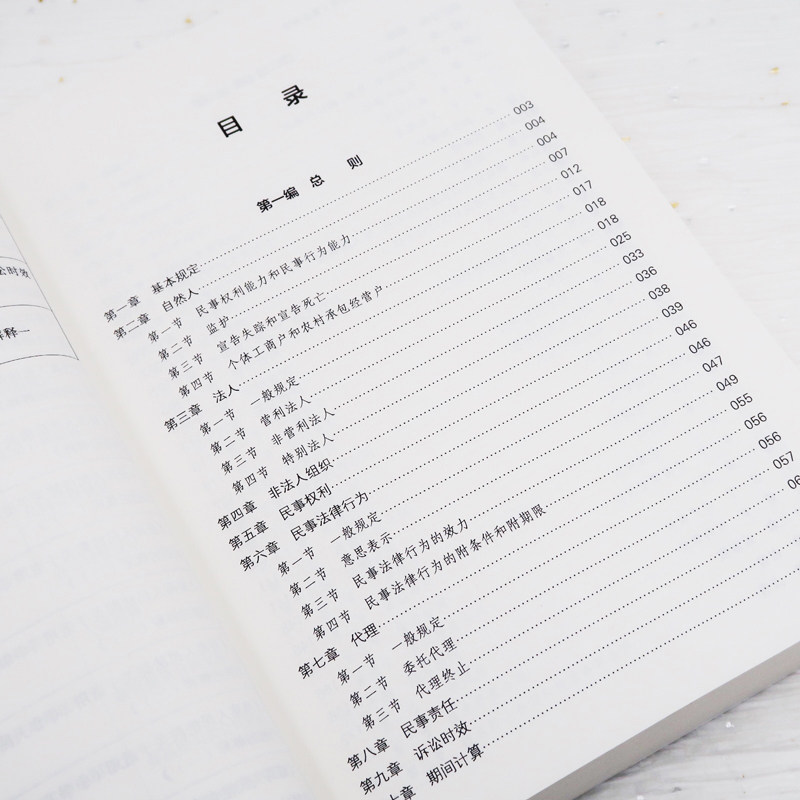 讼时效
解释一
目 录
第一编 总 则
第一章 基本规定 003
第二章 自然人 004
第一节 民事权利能力和民事行为能力 004
第二节 监护 007
第三节 宣告失踪和宣告死亡 012
第四节 个体工商户和农村承包经营户 017
第三章 法人 018
第一节 一般规定 018
第二节 营利法人 025
第三节 非营利法人 033
第四节 特别法人 036
第四章 非法人组织 038
第五章 民事权利 039
第六章 民事法律行为 046
第一节 一般规定 046
第二节 意思表示 047
第三节 民事法律行为的效力 049
第四节 民事法律行为的附条件和附期限 055
第七章 代理 056
第一节 一般规定 056
第二节 委托代理 057
第三节 代理终止
第八章 民事责任
第九章 诉讼时效
十章 期间计算